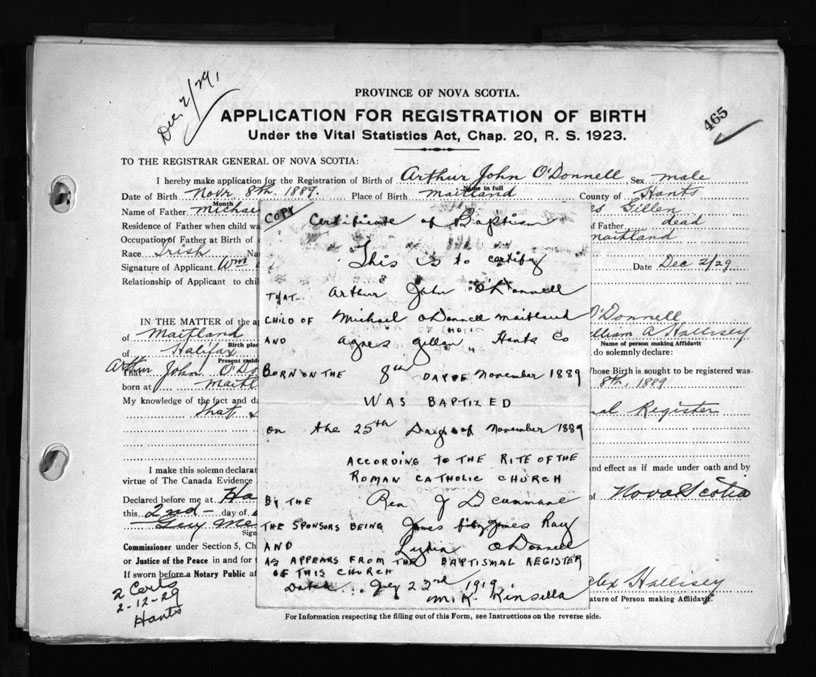 Dec 2/29
PROVINCE OF NOVA SCOTIA.
465
APPLICATION FOR REGISTRATION OF BIRTH
Under the Vital Statistics Act, Chap. 20, R. S. 1923.
TO THE REGISTRAR GENERAL OF NOVA SCOTIA:
I hereby make application for the Registration of Birth of Arthur John O'Donnell Sex male
Name in full
Date of Birth Novr 8th, 1889. Place of Birth maitland County of Hants
Month
Name of Father Michae Gillen
Residence of Father when child wa of Father dead
Occupation of Father at Birth of maitland
Race Irish Na
Signature of Applicant Wm Date Dec 2/29
Relationship of Applicant to chil
COPY
Certificate of Baptism
This is to certify
THAT Arthur John O'Donnell
CHILD OF Michael O'Donnell maitland
AND agnes gillen Hants Co
BORN ON THE 8th DAY OF November 1889
WAS BAPTIZED
on the 25th Day of November 1889
ACCORDING TO THE RITE OF THE
ROMAN CATHOLIC CHURCH
BY THE Rev J D
THE SPONSORS BEING James Ray
AND Lydia O'Donnell
AS APPEARS FROM THE BAPTISMAL REGISTER
OF THIS CHURCH
Dated 23rd 1919.
M. K. Kinsella
IN THE MATTER of the ap O'Donnell
of Maitland lliam A Hallisey
Birth plac Name of person making Affidavit
of Halifax , do solemnly declare:
Present resid
That Arthur John O'Do Whose Birth is sought to be registered was
born at Maitl 8th, 1889
My knowledge of the fact and da
that nal Register
I make this solemn declarat nd effect as if made under oath and by
virtue of The Canada Evidence
Declared before me at Ha of Nova Scotia
this 2nd day of
Guy Mc
Sign
Commissioner under Section 5, Ch
or Justice of the Peace in and for t
If sworn before a Notary Public af lex Hallisey
ature of Person making Affidavit.
2 Certs
2-12-29
Hants
For Information respecting the filling out of this Form, see Instructions on the reverse side.